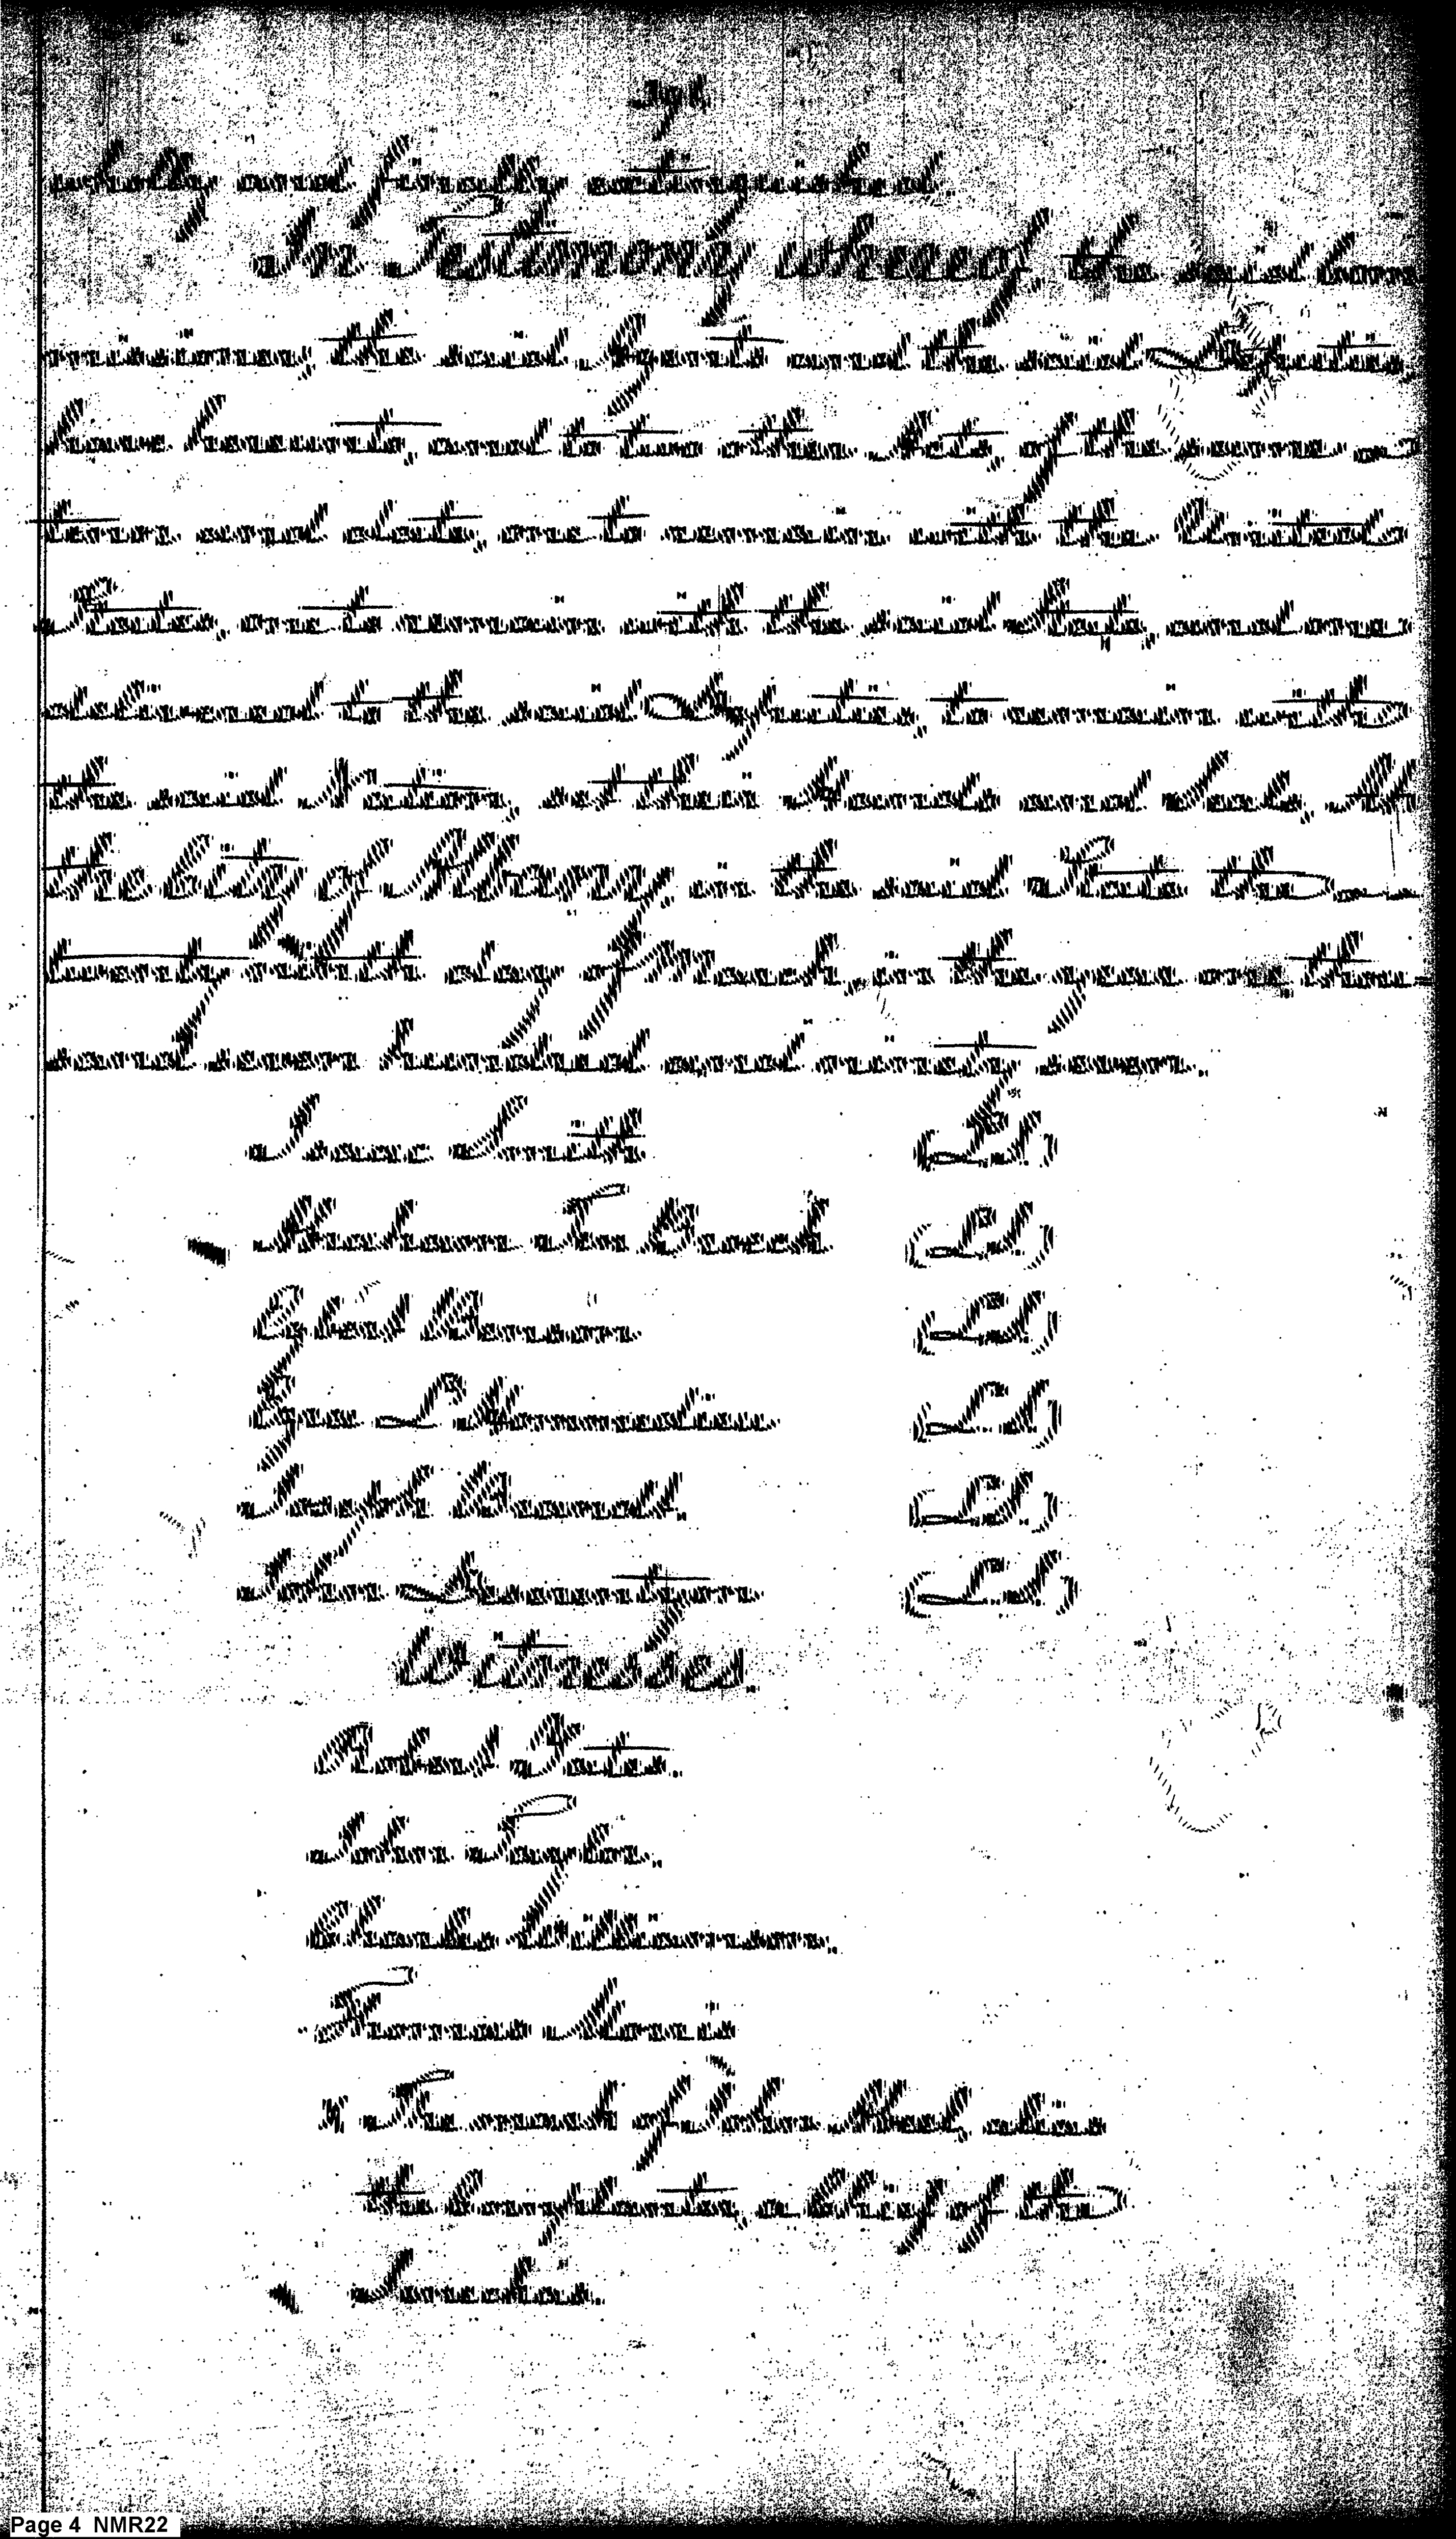 wholly and finally extinguished.
In Testimony whereof, the said Com-
missioner, the said Agents and the said Deputies,
have hereunto, and to two other Acts, of the same
tenor and date, one to remain with the United
States, one to remain with the said State, and one
delivered to the said Deputies, to remain with
the said Nation, set their Hands and Seals, At
the City of Albany, in the said State the
twenty ninth day of March, in the year one thou-
sand seven hundred and ninety seven.
Isaac Smith (LS)
Abraham Ten Broeck (LS)
Egbt Benson (LS)
Ezra L'Hommedieu (LS)
Joseph Brandt. (LS)
John Deserontyon. (LS)
Witnesses.
Robert Yates.
John Tayler.
Charles Williamson.
Thomas Morris
The mark of John Abeel, alias
the Cornplanter, a Chief of the
Senekas.
Page 4 NMR22